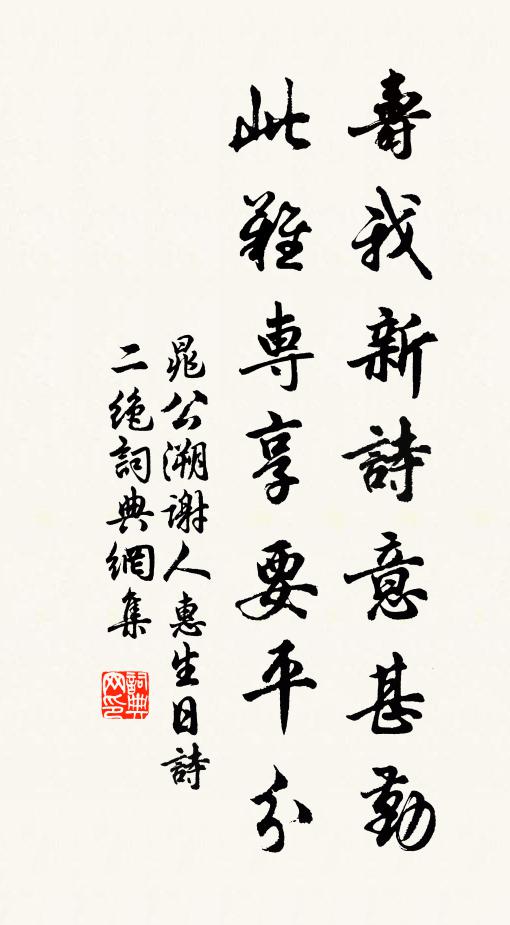 壽我新詩意甚勤
此難專享要平分
晁公溯謝人惠生日詩
二絶詞典網集
詞典
网印